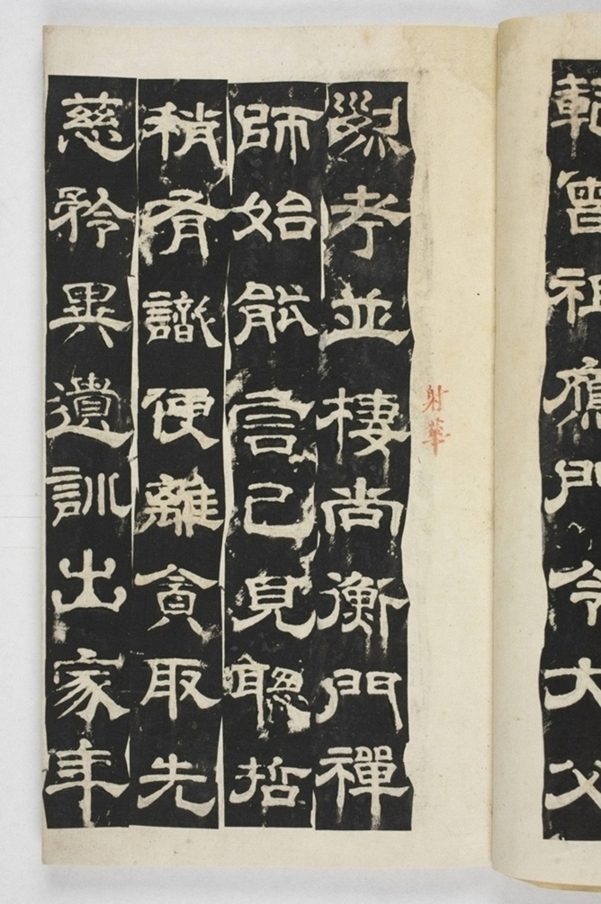 範曾祖門令大父
射華
烈考並棲尚衡門禪
師始能言已見聰哲
稍有識便離貪取先
慈矜異遺訓出家年